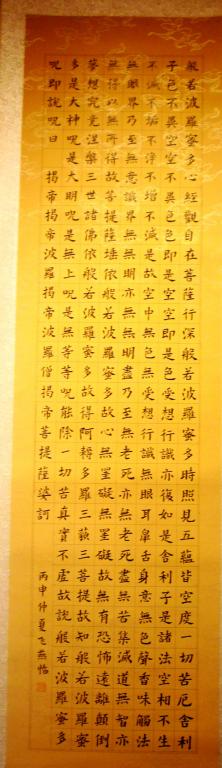 般若波羅蜜多心經觀自在菩薩行深般若波羅蜜多時照見五蘊皆空度一切苦厄舍利
子色不異空空不異色色即是空空即是色受想行識亦復如是舍利子是諸法空相不生
不滅不垢不淨不增不減是故空中無色無受想行識無眼耳鼻舌身意無色聲香味觸法
無眼界乃至無意識界無無明亦無無明盡乃至無老死亦無老死盡無苦集滅道無智亦
無得以無所得故菩提薩埵依般若波羅蜜多故心無罣礙無罣礙故無有恐怖遠離顛倒
夢想究竟涅槃三世諸佛依般若波羅蜜多故得阿耨多羅三藐三菩提故知般若波羅蜜
多是大神呪是大明呪是無上呪是無等等呪能除一切苦真實不虛故說般若波羅蜜多
呪即說呪曰 揭帝揭帝波羅揭帝波羅僧揭帝菩提薩婆訶
丙申仲夏